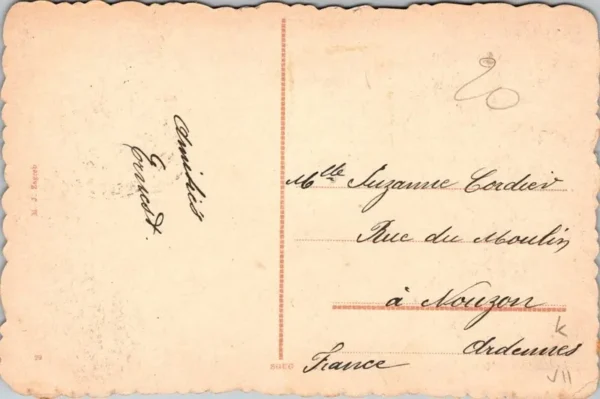 Amitiés
Ernest.
20
Mlle Suzanne Cordier
Rue du Moulin
à Nouzon
Ardennes
France
k
VII